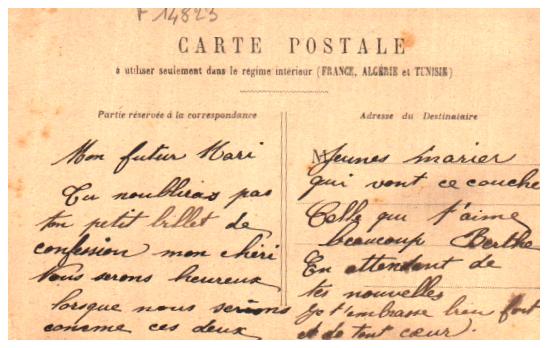 F 14823
CARTE POSTALE
à utiliser seulement dans le régime intérieur (FRANCE, ALGÉRIE et TUNISIE)
Partie réservée à la correspondance
Mon futur Mari
Tu noublieras pas
ton petit billet de
confession mon chéri
Nous serons heureux
lorsque nous serions
comme ces deux
Adresse du Destinataire
M
Jeunes marier
qui vont ce couche
Celle qui t'aime
beaucoup Berthe
En attendent de
tes nouvelles
Je t'embrasse bien fort
et de tout cœur.